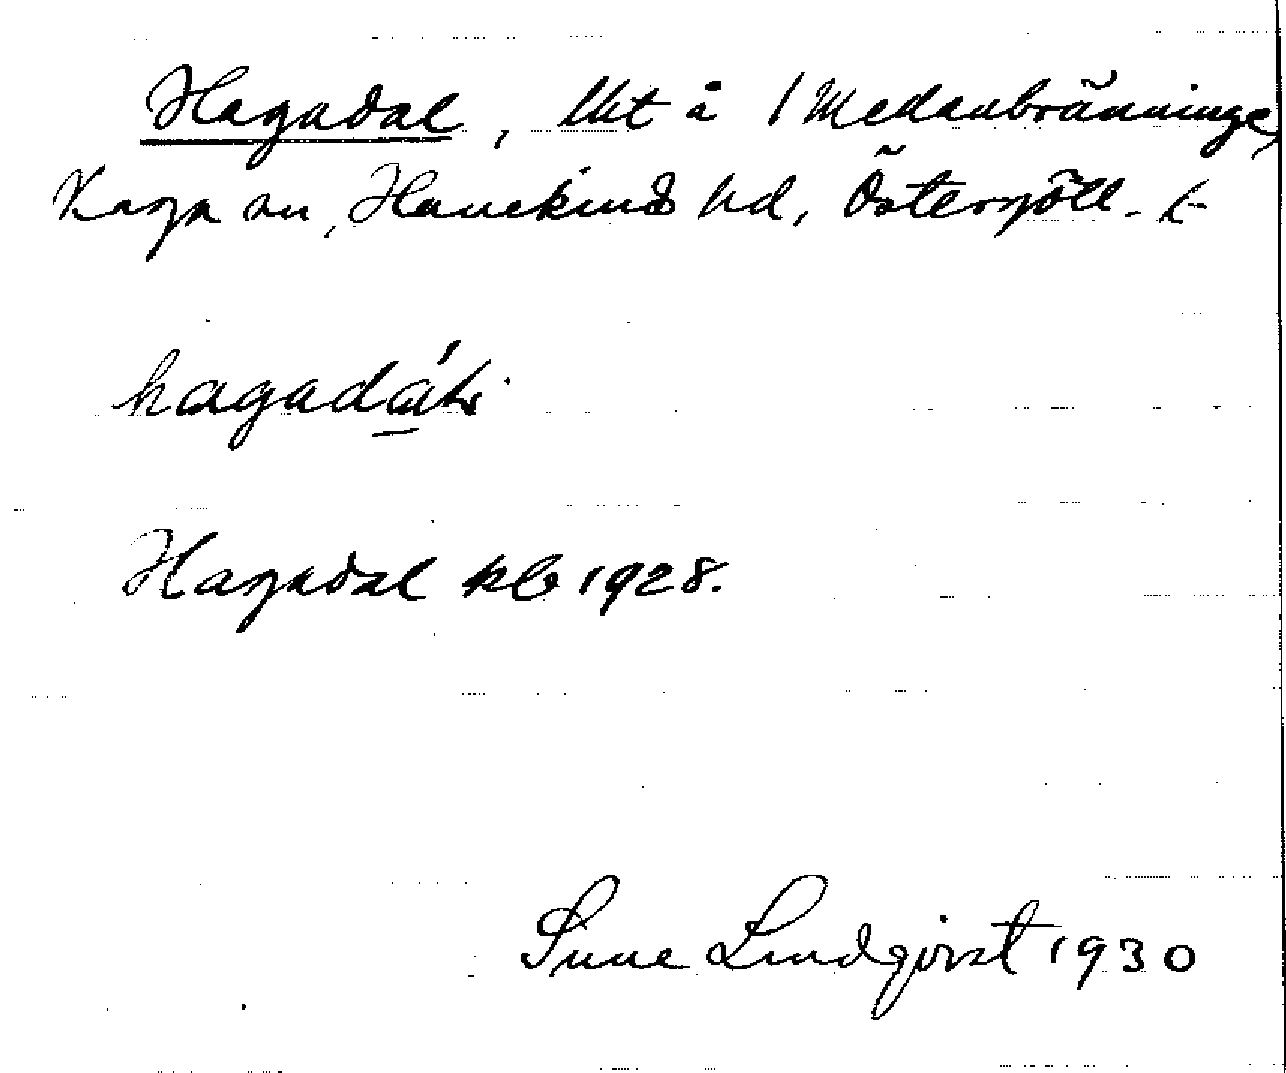 Hagadal, lht å 1 Medanbränninge,
Kaga sn, Hanekinds hd, Östergötl.
hagadɑ́l
Hagadal kb 1928.
Sune Lindqvist 1930